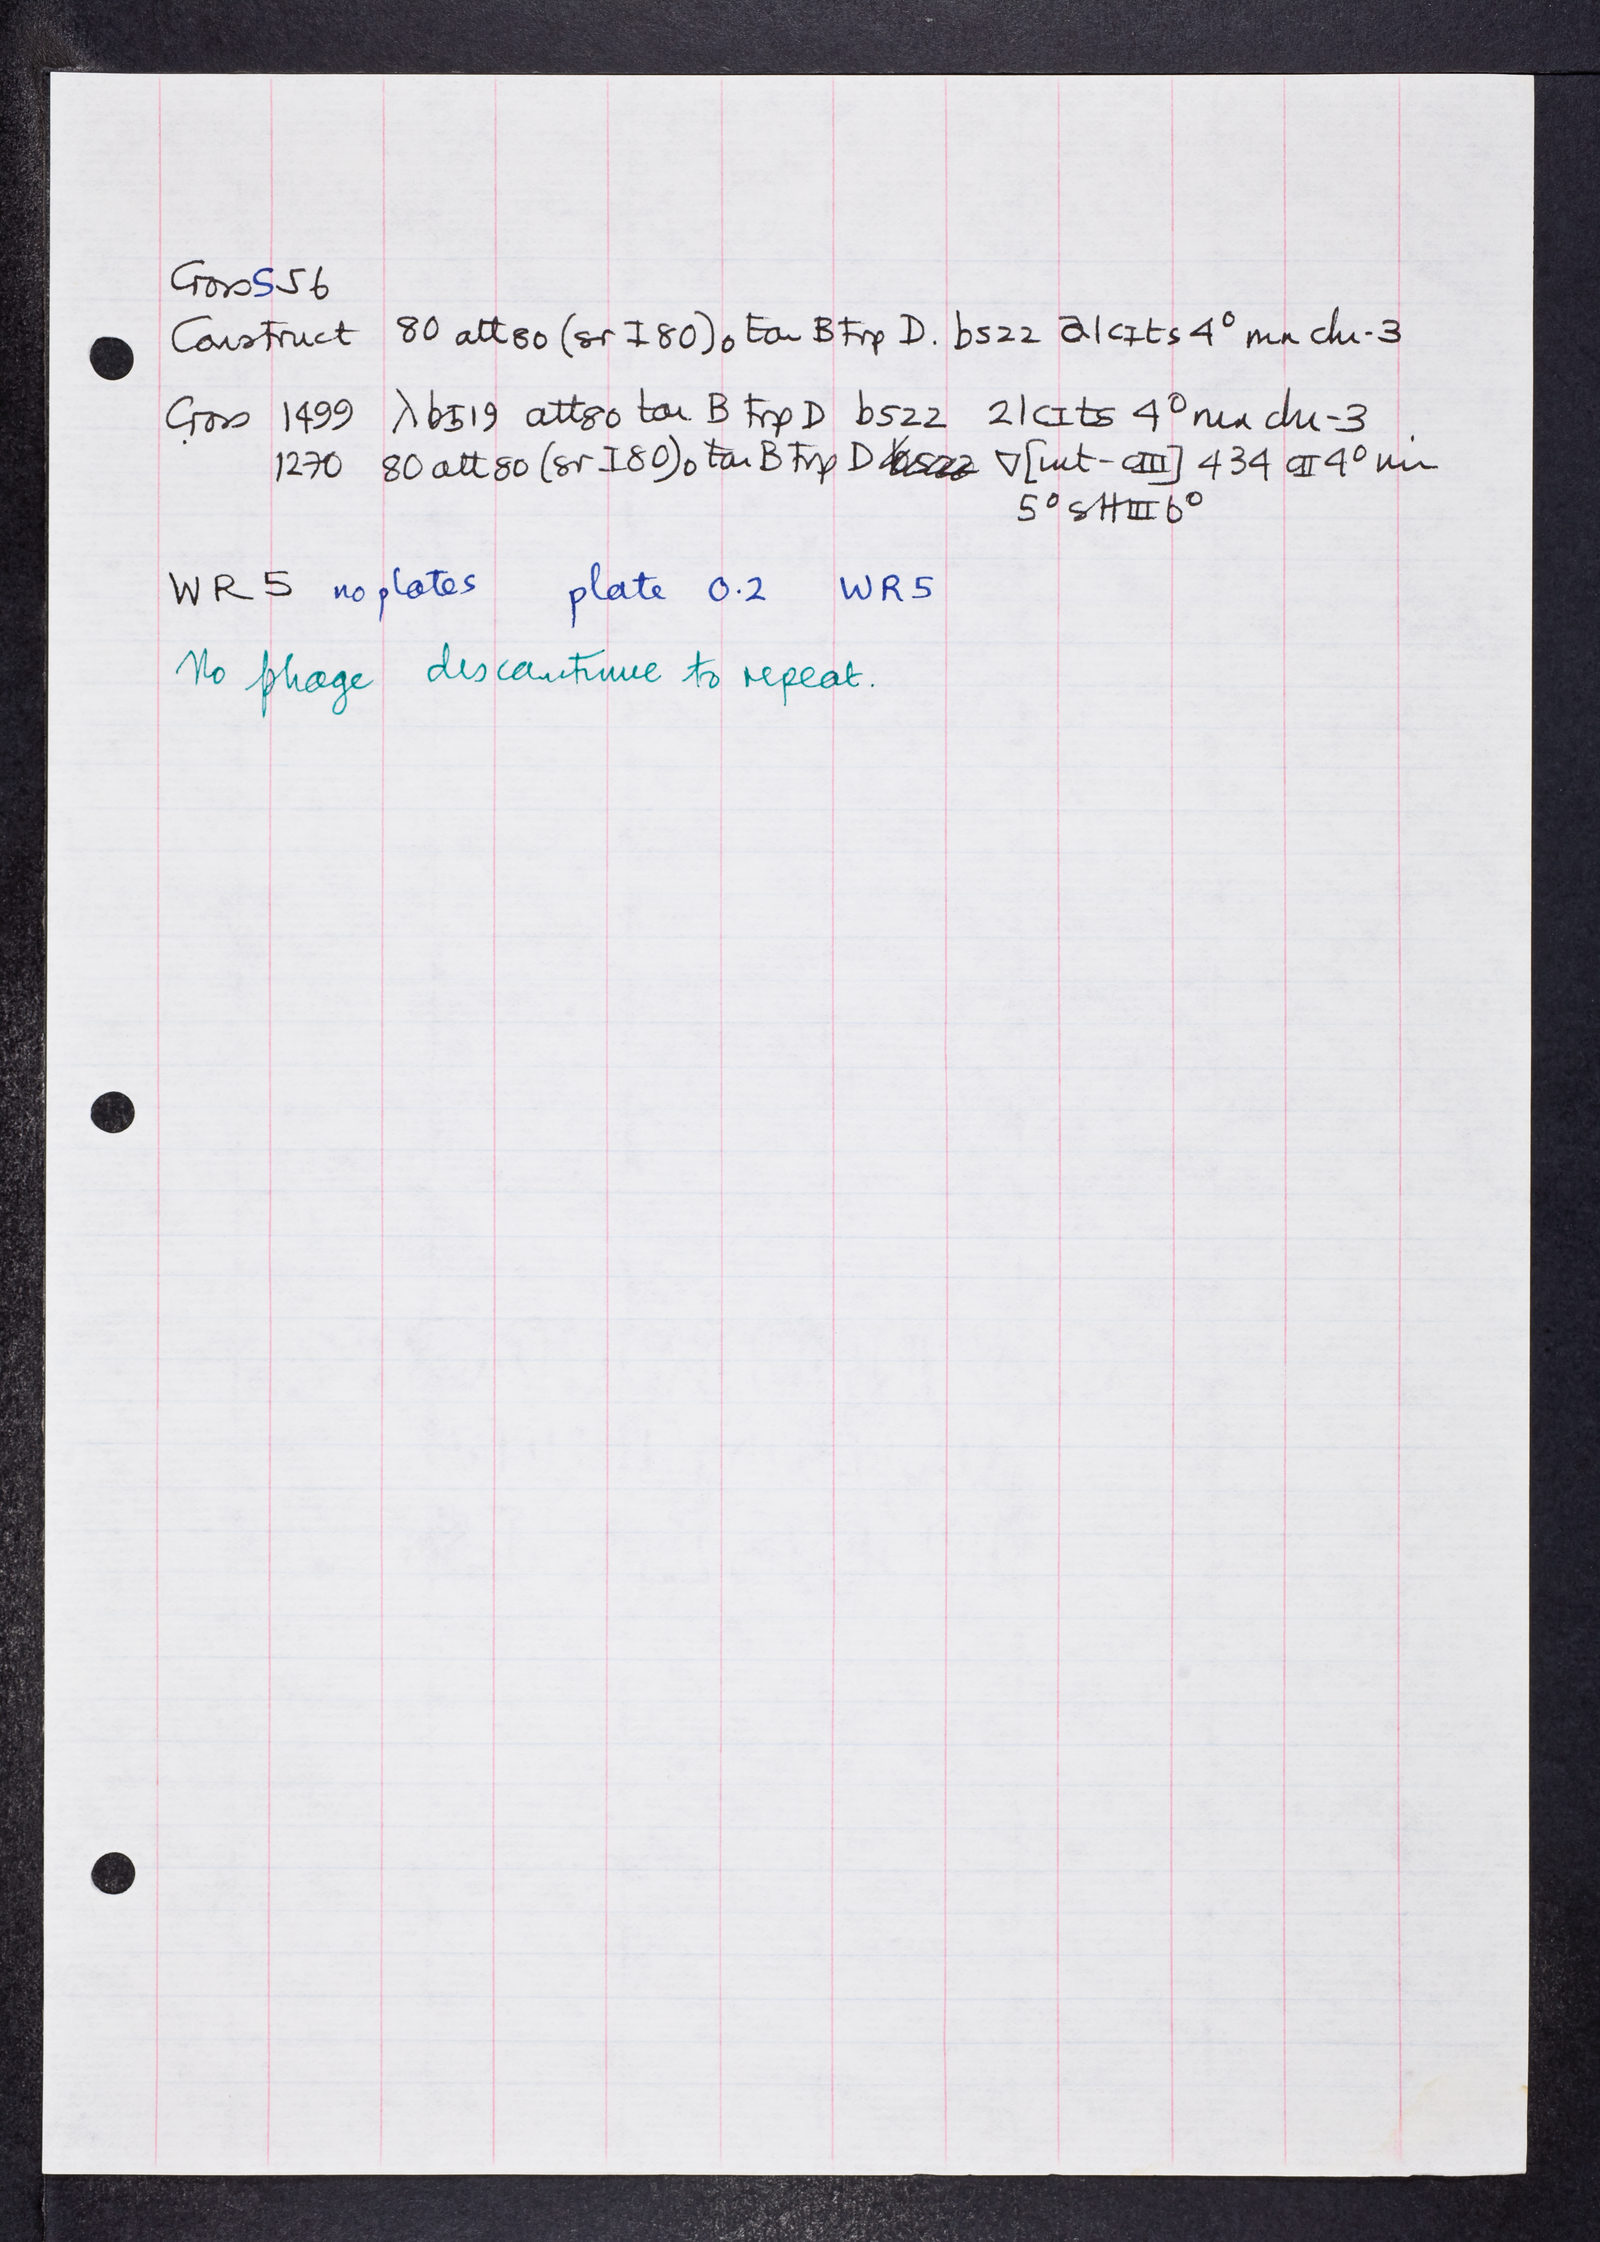 Cross S56
Construct 80 att80 (sr I 80)o ton B trp D. b522 21 cIts 4° nin chi-3
Cross 1499 λ b519 att80 ton B trp D b522 21 cIts 4° nin chi-3
1270 80 att80 (sr I 80)o ton B trp D ∇[int-cIII] 434 cII 4° nin
5° sHIII6°
WR5 no plates plate 0.2 WR5
No phage discontinue to repeat.